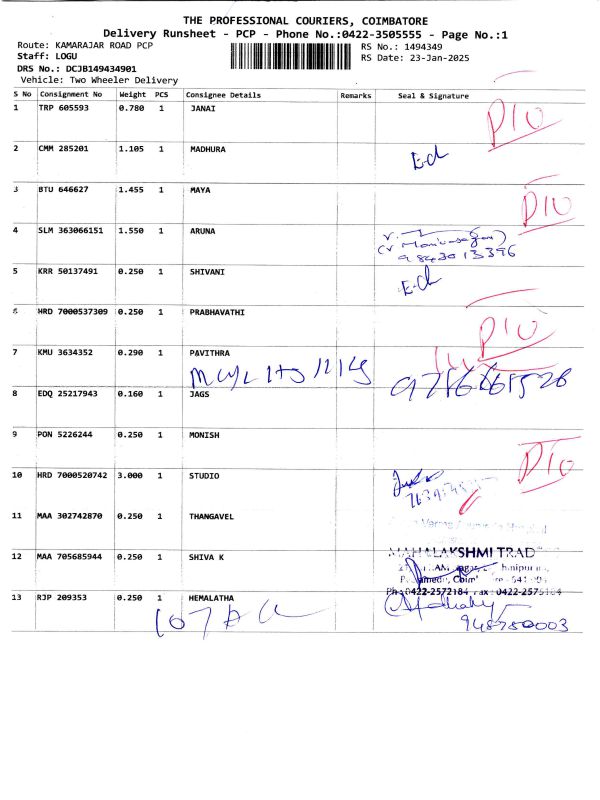 THE PROFESSIONAL COURIERS, COIMBATORE
Delivery Runsheet - PCP - Phone No.:0422-3505555 - Page No.:1
Route: KAMARAJAR ROAD PCP RS No.: 1494349
Staff: LOGU RS Date: 23-Jan-2025
DRS No.: DCJB149434901
Vehicle: Two Wheeler Delivery
S No Consignment No Weight PCS Consignee Details Remarks Seal & Signature
1 TRP 605593 0.780 1 JANAI D10
2 CMM 285201 1.105 1 MADHURA
3 BTU 646627 1.455 1 MAYA D10
4 SLM 363066151 1.550 1 ARUNA
9843013396
5 KRR 50137491 0.250 1 SHIVANI
6 HRD 7000537309 0.250 1 PRABHAVATHI D10
7 KMU 3634352 0.290 1 PAVITHRA
8 EDQ 25217943 0.160 1 JAGS
9 PON 5226244 0.250 1 MONISH D10
10 HRD 7000520742 3.000 1 STUDIO
11 MAA 302742870 0.250 1 THANGAVEL
12 MAA 705685944 0.250 1 SHIVA K MAHALAKSHMI TRAD
Ph : 0422-2572184
13 RJP 209353 0.250 1 HEMALATHA